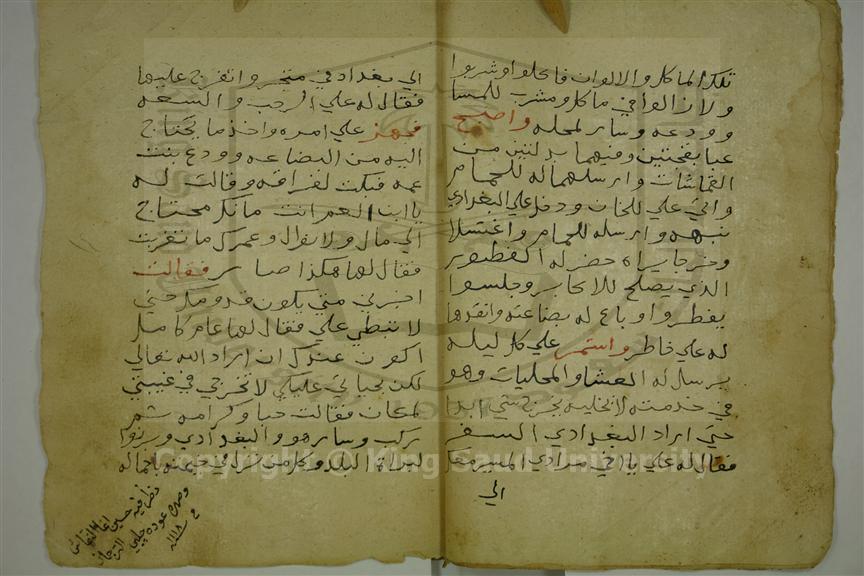 تلك الماكل والالوان فاكلوا وشربوا
ولا زالوا في ماكل ومشرب للمسا
وودعه وسار لمحله واصبح
عبا بقجتين وفيهما بدلتين من
القماشات وارسلهما له للحمام
واتي علي للخان ودخل علي البغدادي
نبهه وارسله للحمام واغتسلا
وخرجا يراه حضر له الفطور
الذي يصلح للاكابر وجلسوا
يفطروا وباع له بضاعته وانقدها
له علي خاطر واستمر علي كل ليله
يرسل له العشا والمحليات وهو
في خدمته لا يخليه يخرج شي ابدا
حتي اراد البغدادي السفر
فقال له علي يا اخي مرادي المسير معك
الي
الي بغداد في متجر واتفرج عليها
فقال له علي الرحب والسعه
فجهز علي امره واخذ ما يحتاج
اليه من البضاعه وودع بنت
عمه فبكت لفراقه وقالت له
يا ابن العم انت مانك محتاج
الي مال ولا نوال وعمرك ما تغربت
فقال لها هكذا صاير فقالت
اخبرني متي يكون قدومك حتي
لا تبطي علي فقال لها عام كامل
اكون عندك ان اراد الله تعالي
لكن بحياتي عليكي لا تخرجي في غيبتي
لمكان فقالت حبا وكرامه ثم
ركب وسار هو والبغدادي وبرزوا
لبراة البلد
حسين اغا
وصهره عوده جلبي
Copyright © King Saud University